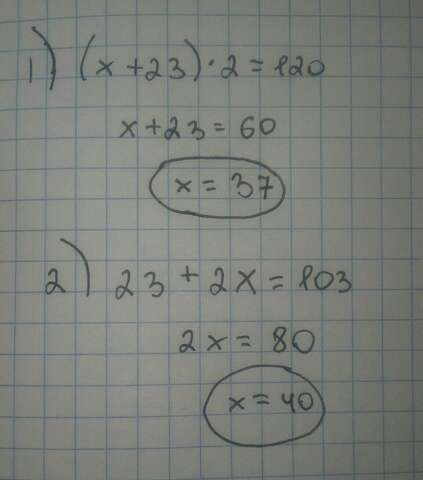 1) (x+23)·2=120
x+23=60
x=37
2) 23+2x=103
2x=80
x=40